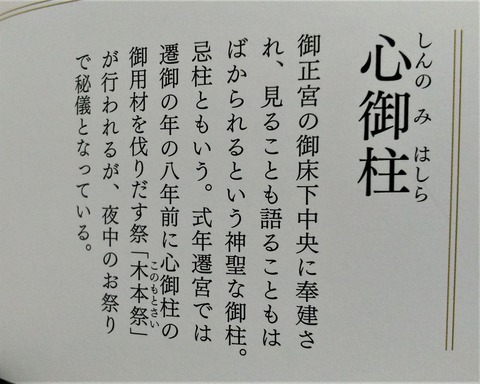 しんの み はしら
心御柱
御正宮の御床下中央に奉建さ
れ、見ることも語ることもは
ばかられるという神聖な御柱。
忌柱ともいう。式年遷宮では
遷御の年の八年前に心御柱の
御用材を伐りだす祭「木本祭」
このもとさい
が行われるが、夜中のお祭り
で秘儀となっている。